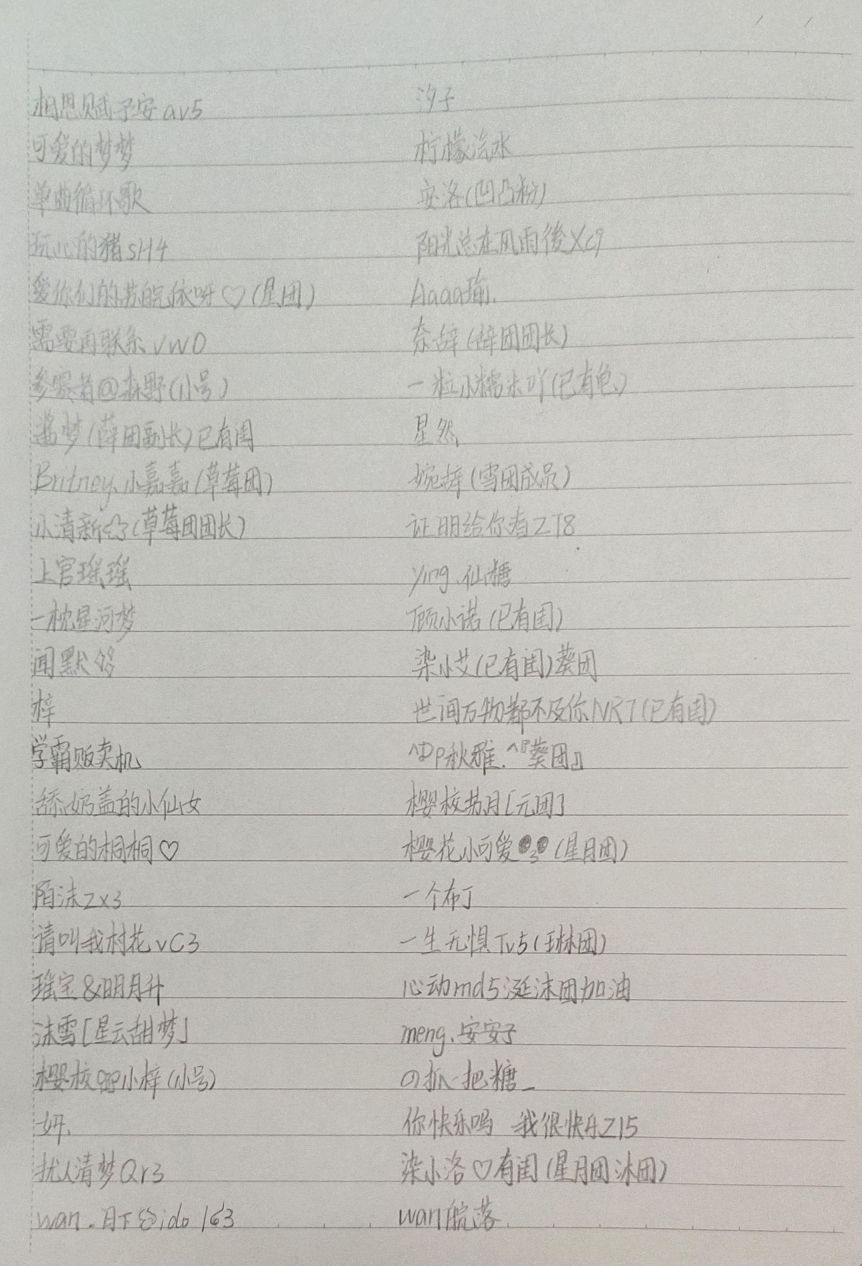 相思赋予安av5 汐子
可爱的梦梦 柠檬汽水
单曲循环歌 安洛(凹凸粉)
玩儿的猪sH4 阳光总在风雨後Xc9
爱你们的苏皖依呀♡(星团) Aaaa瑜.
需要再联系vw0 奈辞(薛团团长)
参赛者@森野(小号) 一粒小糯米吖(已有包)
梦(薛团副长)已有闺 星然
Britney.小嘉嘉(草莓团) 婉辞(雪团成员)
小清新(草莓团团长) 证明给你看ZT8
上官瑶瑶 ying.仙糖
一枕星河梦 顾小诺(已有闺)
闻默 染小艾(已有闺)葵团
梓 世间万物都不及你NR7(已有闺)
学霸贩卖机 秋雅.^『葵团』
舔奶盖的小仙女 樱校苏月[元团]
可爱的桐桐♡ 樱花小可爱(星月团)
陌沫zx3 一个布丁
请叫我村花vC3 一生无惧Tv5(琳团)
瑶宝&明月升 心动md5涎沫团加油
沫雪[星云甜梦] meng.安安子
樱校小梓(小号) の抓一把糖_
妍. 你快乐吗 我很快乐Z15
扰人清梦Qr3 染小洛♡有闺(星月团沐团)
wan.月下ido 163 wan皖落